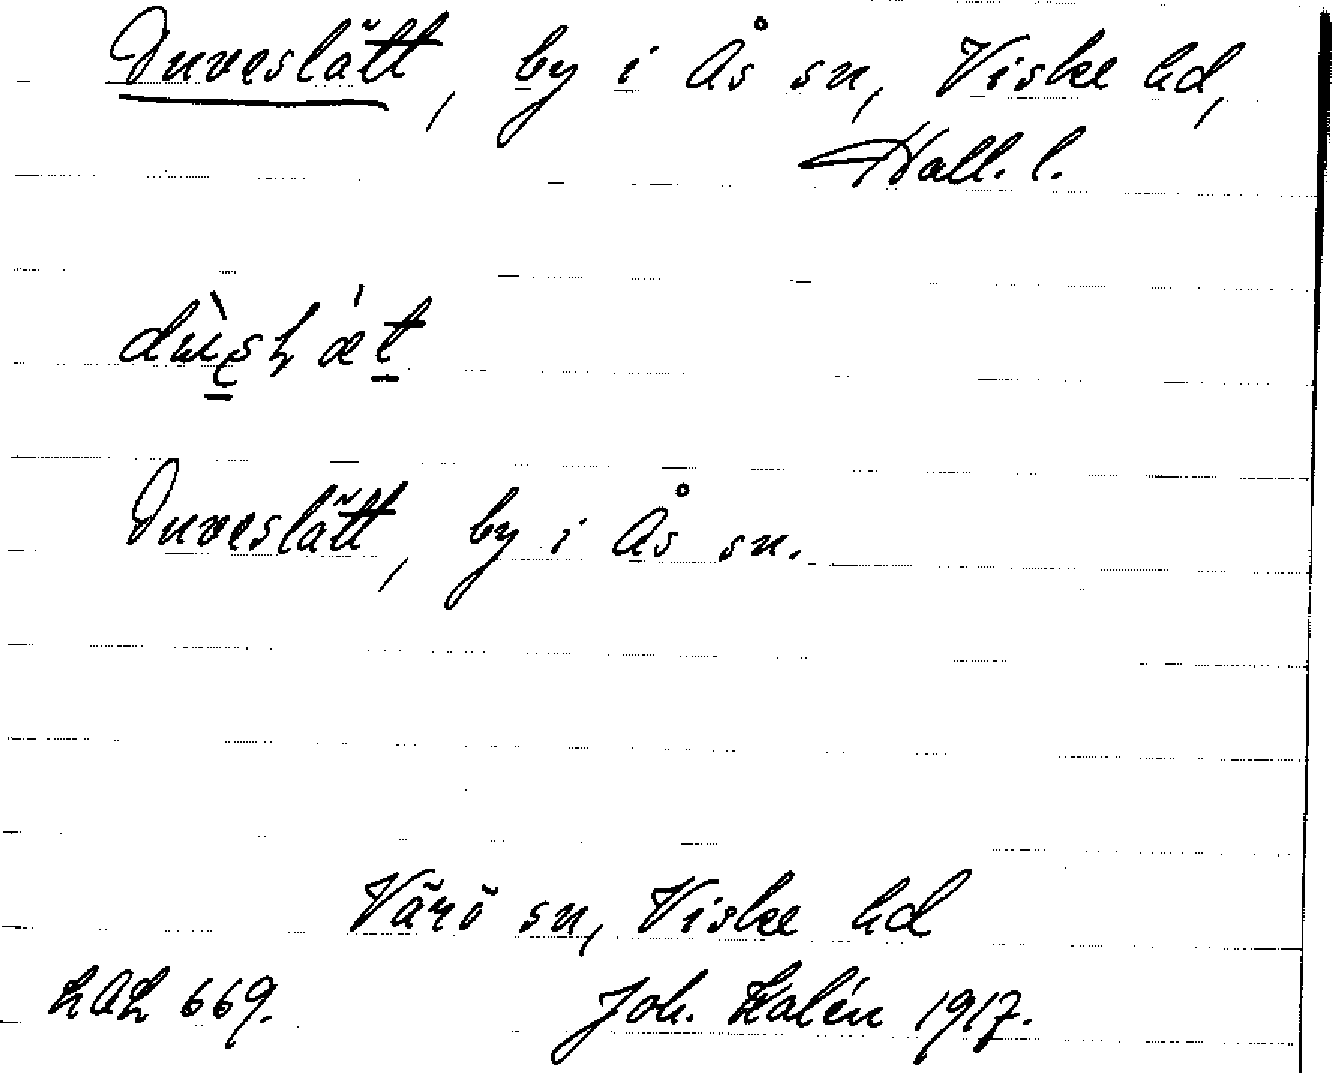 Duveslätt, by i Ås sn, Viske hd,
Hall. l.
Duveslätt, by i Ås sn.
Värö sn, Viske hd
LAL 669. Joh. Kalén 1917.